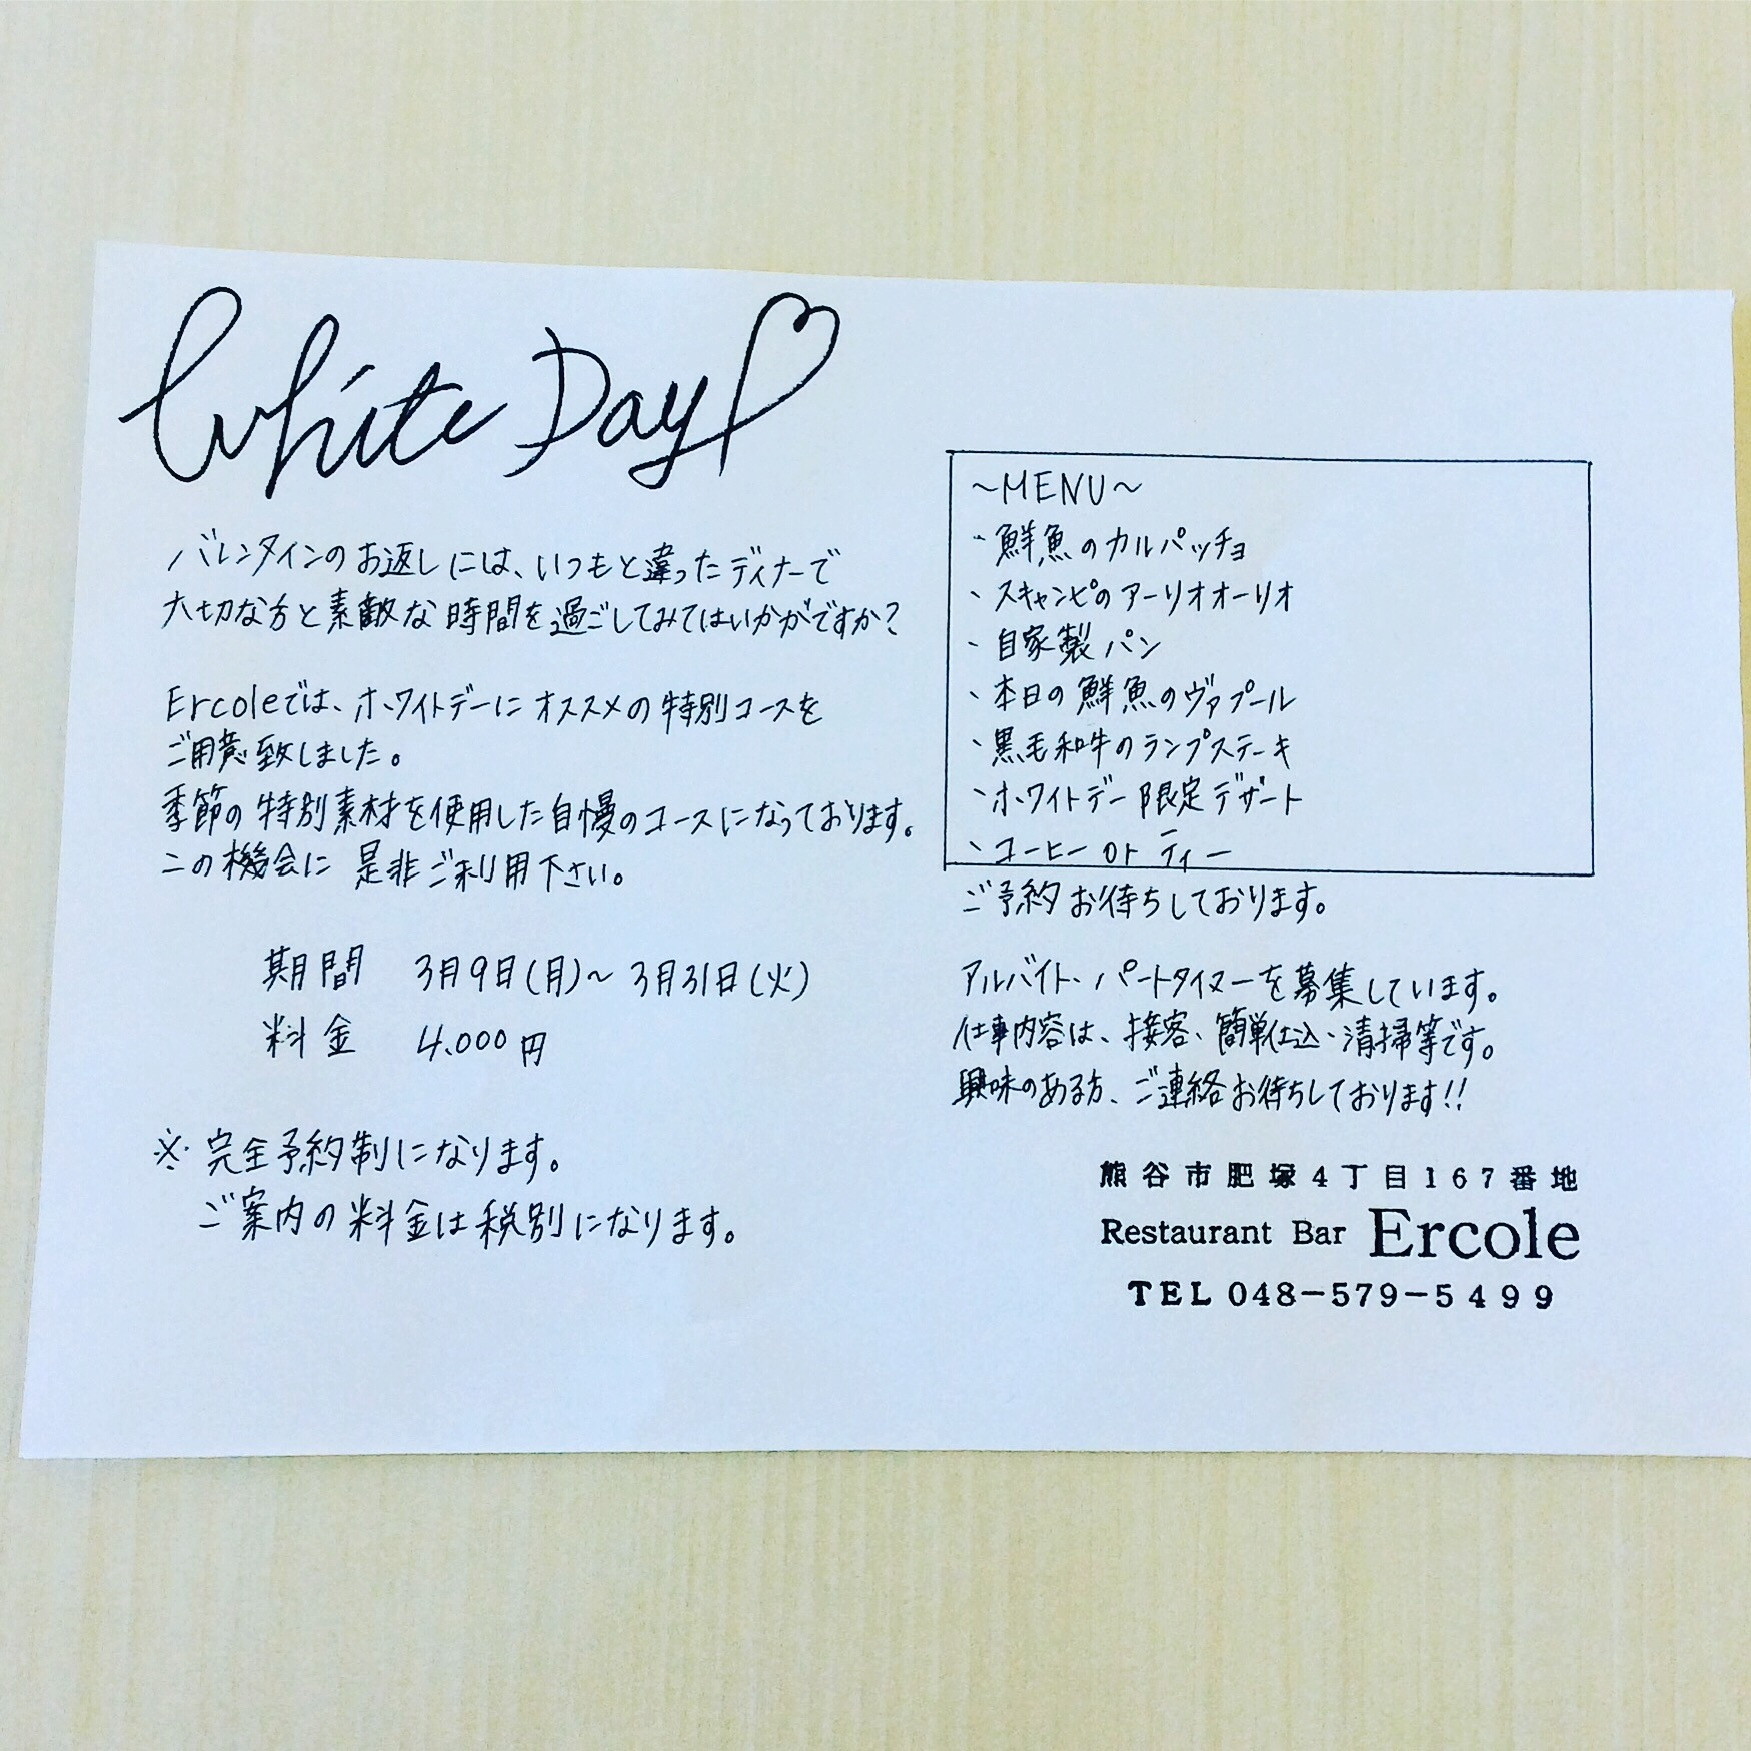 White Day
バレンタインのお返しには、いつもと違ったディナーで
大切な方と素敵な時間を過ごしてみてはいかがですか?
Ercoleでは、ホワイトデーにオススメの特別コースを
ご用意致しました。
季節の特別素材を使用した自慢のコースになっております。
この機会に是非ご利用下さい。
期間 3月9日(月)~3月31日(火)
料金 4.000円
※完全予約制になります。
ご案内の料金は税別になります。
~MENU~
・鮮魚のカルパッチョ
・スキャンピのアーリオオーリオ
・自家製パン
・本日の鮮魚のヴァプール
・黒毛和牛のランプステーキ
・ホワイトデー限定デザート
・コーヒー or ティー
ご予約お待ちしております。
アルバイト・パートタイマーを募集しています。
仕事内容は、接客・簡単仕込・清掃等です。
興味のある方、ご連絡お待ちしております!!
熊谷市肥塚4丁目167番地
Restaurant Bar Ercole
TEL 048-579-5499